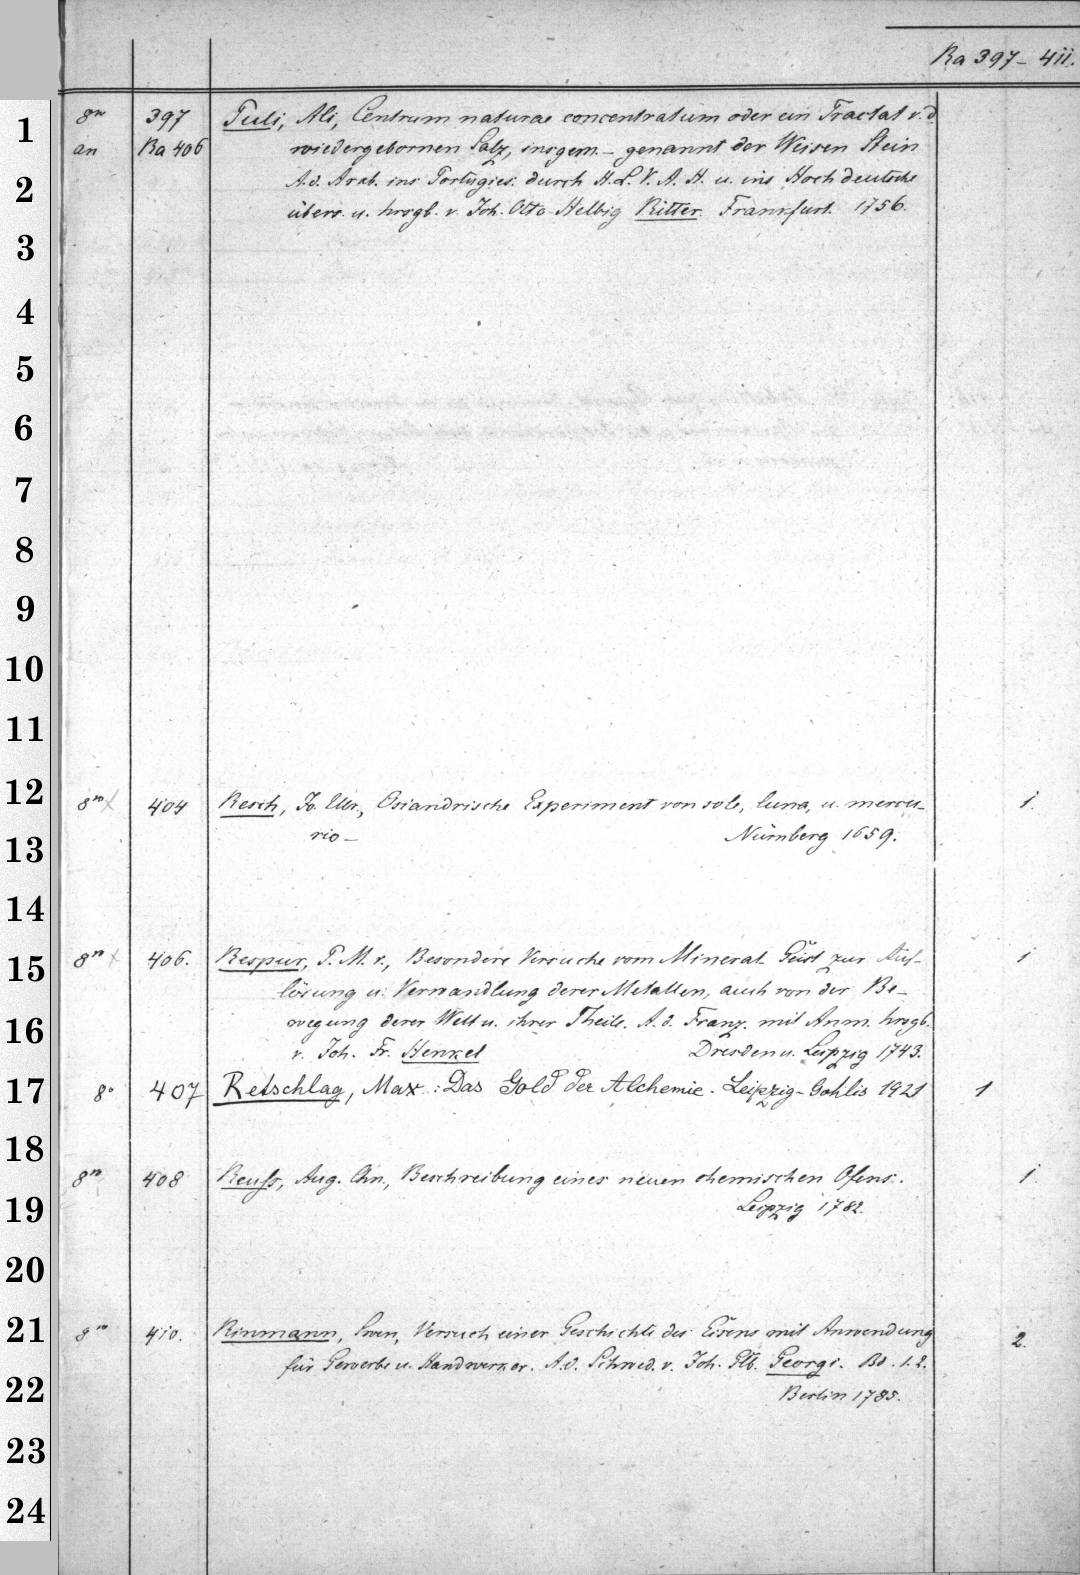 Ra 397 - 411.
8° 397 Puli, Ali, Centrum naturae concentratum oder ein Tractat v. d.
an Ra 406 wiedergebornen Salz, insgem. - genannt der Weisen Stein
A. d. Arab. ins Portugies. durch H. L. V. A. H. u. ins Hochdeutsche
übers. u. hrsgb. v. Joh. Otto Helbig Ritter. Frankfurt. 1756.
404 Resch, Jo. Ulr., Osiandrische Experiment von sole, luna, u. mercu- 1.
rio - Nürnberg 1659.
406. Respur, P. M. v., Besondere Versuche vom Mineral Geist zur Auf- 1
lösung u. Verwandlung derer Metallen, auch von der Be-
wegung derer Welt u. ihrer Theile. A. d. Franz. mit Anm. hrsgb.
v. Joh. Fr. Henkel Dresden u. Leipzig 1743.
8° 407 Retschlag, Max : Das Gold der Alchemie. Leipzig-Gohlis 1921 1
408 Reuss, Aug. Chn., Beschreibung eines neuen chemischen Ofens. 1
Leipzig 1782.
410. Rinmann, Sven, Versuch einer Geschichte des Eisens mit Anwendung 2.
für Gewerbe u. Handwerker. A. d. Schwed. v. Joh. Glb. Georgi. Bd. 1. 2.
Berlin 1785.
1
2
3
4
5
6
7
8
9
10
11
12
13
14
15
16
17
18
19
20
21
22
23
24